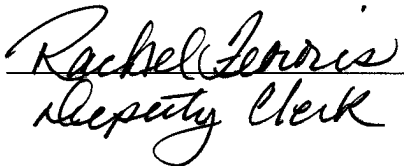 Rachel Ferris
Deputy Clerk